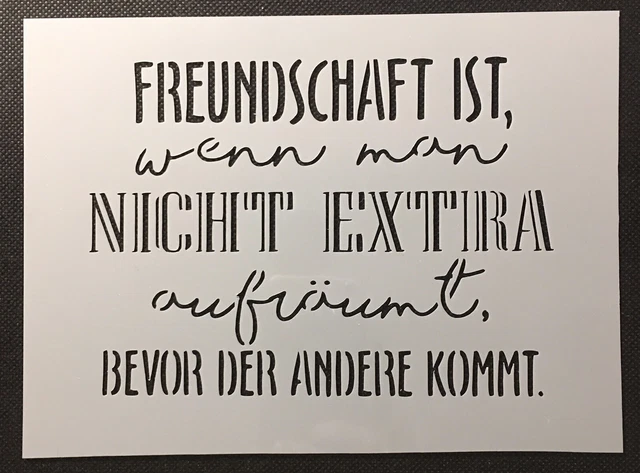 FREUNDSCHAFT IST,
wenn man
NICHT EXTRA
aufräumt,
BEVOR DER ANDERE KOMMT.